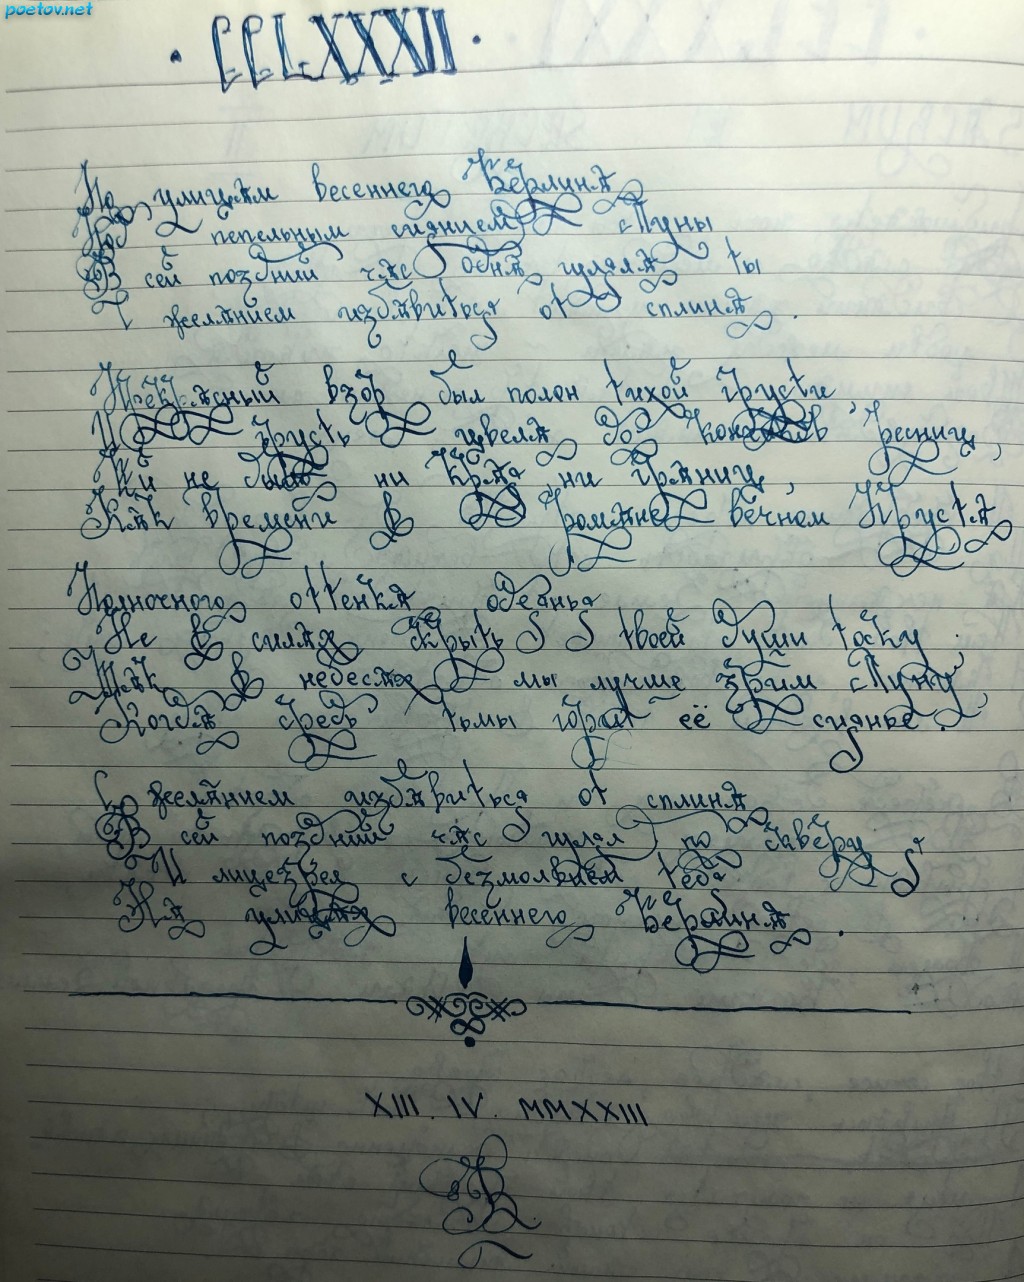 poetov.net
· CCLXXXII ·
По улицам весеннего Берлина
Под пепельным сиянием Луны
В сей поздний час одна гуляла ты
С желанием избавиться от сплина.
Прекрасный взор был полон тихой грусти,
И грусть цвела до кончиков ресниц,
Ей не было ни края, ни границ,
Как времени в романе вечном Пруста.
Полночного оттенка одеянья
Не в силах скрыть твоей души тоску;
Так в небесах мы лучше зрим Луну,
Когда средь тьмы горит её сиянье.
С желанием избавиться от сплина
В сей поздний час гулял по скверу я
И лицезрел с безмолвием тебя
На улицах весеннего Берлина.
XIII. IV. MMXXIII